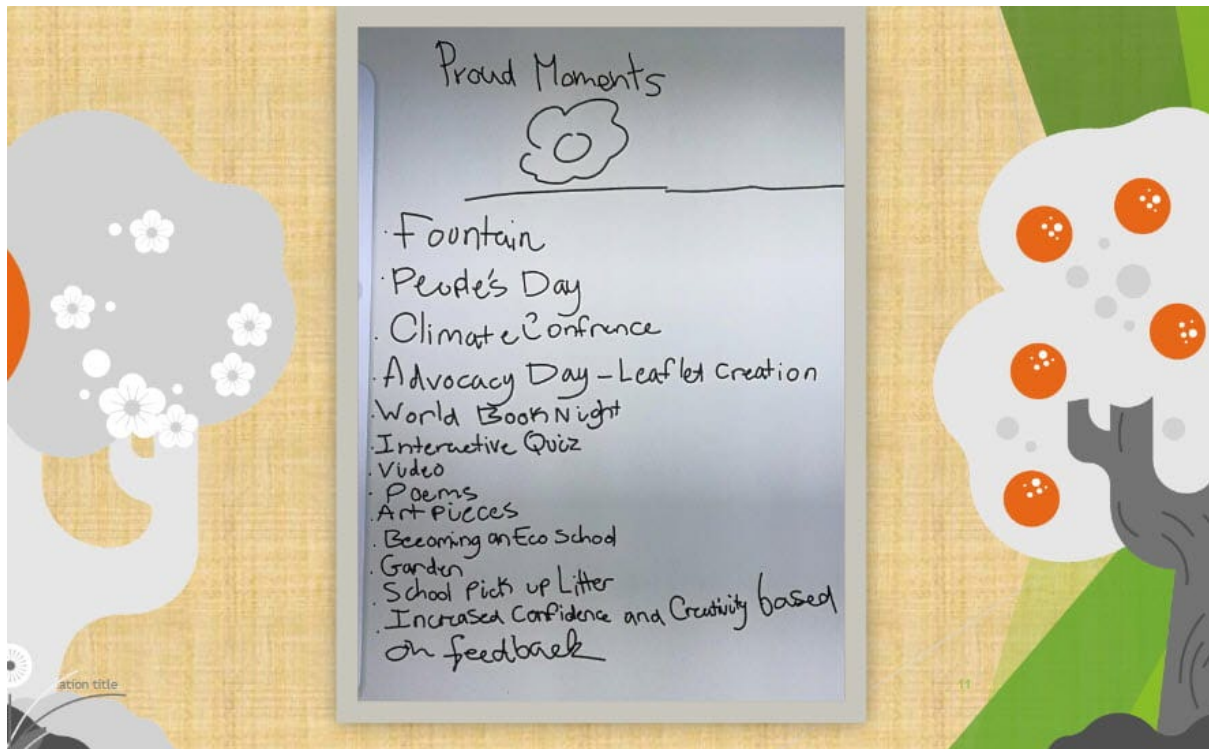 Proud Moments
· Fountain
· People's Day
· Climate Confrence
· Advocacy Day - Leaflet Creation
· World Book Night
· Interactive Quiz
· Video
· Poems
· Art Pieces
· Becoming an Eco School
· Garden
· School Pick up Litter
· Increased Confidence and Creativity based
on feedback
ation title
11